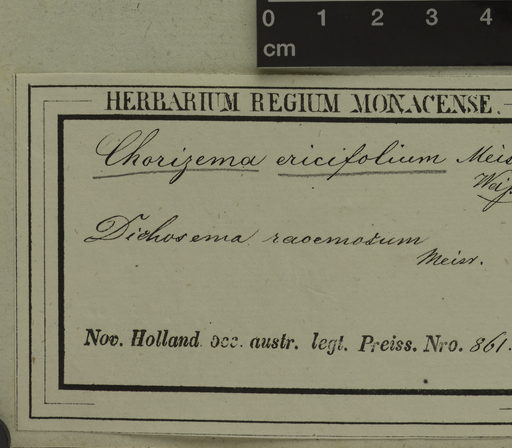 0 1 2 3 4
cm
HERBARIUM REGIUM MONACENSE.
Chorizema ericifolium Meis
Dichosema racemosum
Meisr.
Nov. Holland occ. austr. legt. Preiss. Nro. 861.